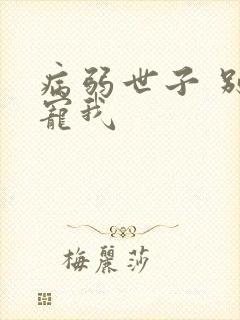 病弱世子 别
寵我
梅麗莎